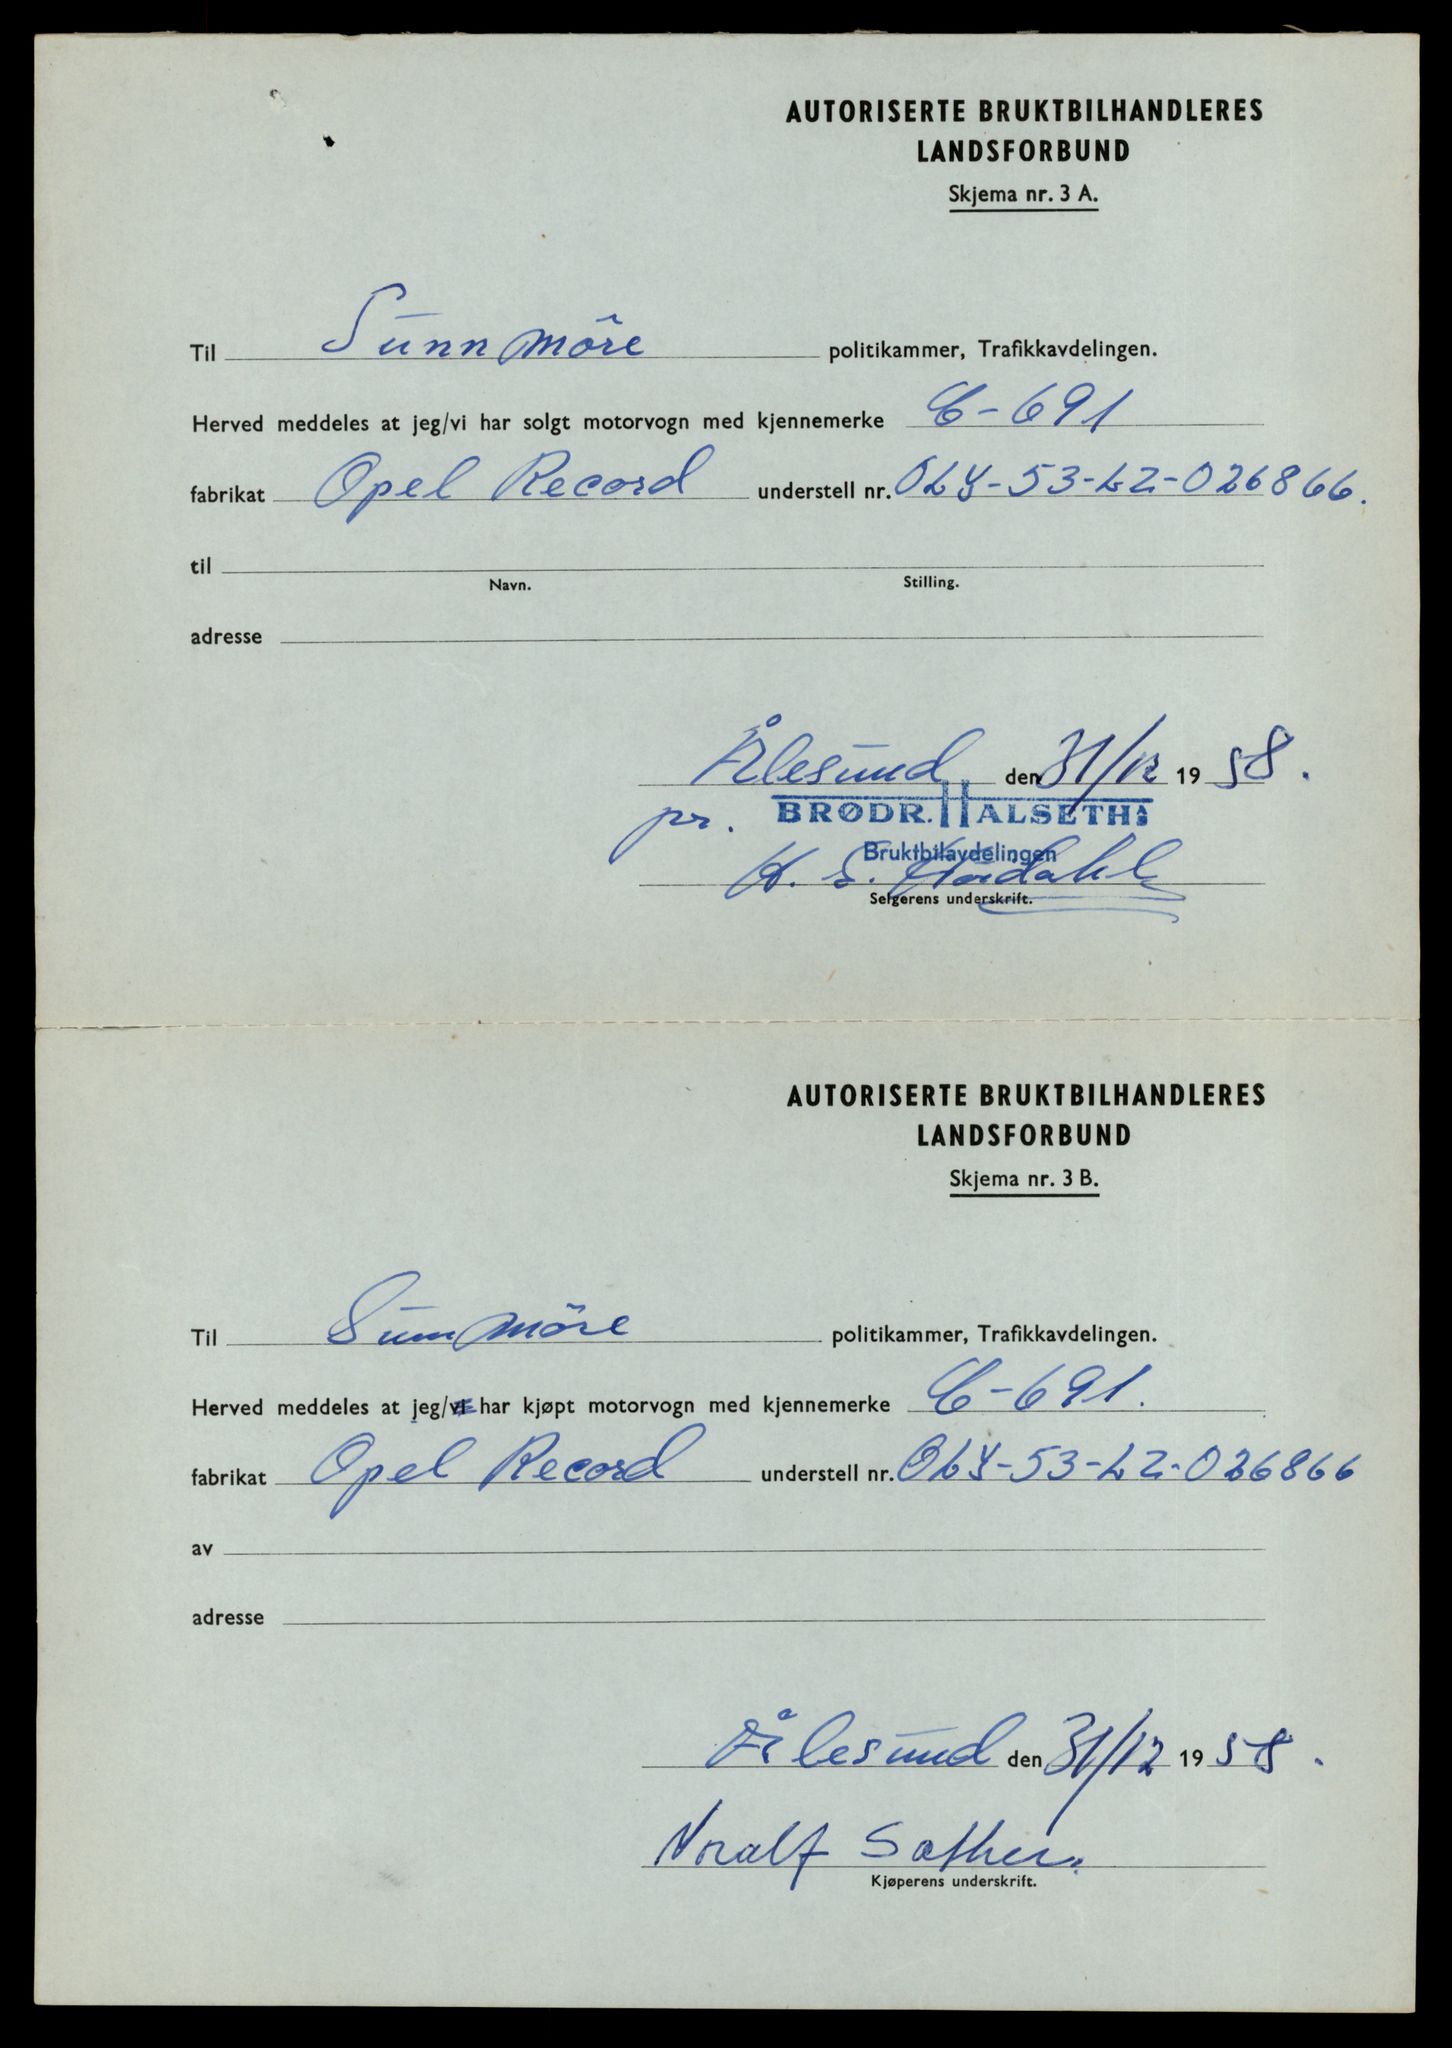 AUTORISERTE BRUKTBILHANDLERES
LANDSFORBUND
Skjema nr. 3 A.
Til Sunnmöre politikammer, Trafikkavdelingen.
Herved meddeles at jeg/vi har solgt motorvogn med kjennemerke -691
fabrikat Opel Record understell nr. OLY-53-LZ-026866.
til
Navn. Stilling.
adresse
Ålesund den 31/12 1958.
pr. BRØDR. HALSETH A/S
Bruktbilavdelingen
H. S.
Selgerens underskrift.
AUTORISERTE BRUKTBILHANDLERES
LANDSFORBUND
Skjema nr. 3 B.
Til Sunnmöre politikammer, Trafikkavdelingen.
Herved meddeles at jeg/vi har kjøpt motorvogn med kjennemerke -691.
fabrikat Opel Record understell nr. OLY-53-LZ-026866
av
adresse
Ålesund den 31/12 1958.
Noralf Sæther.
Kjøperens underskrift.